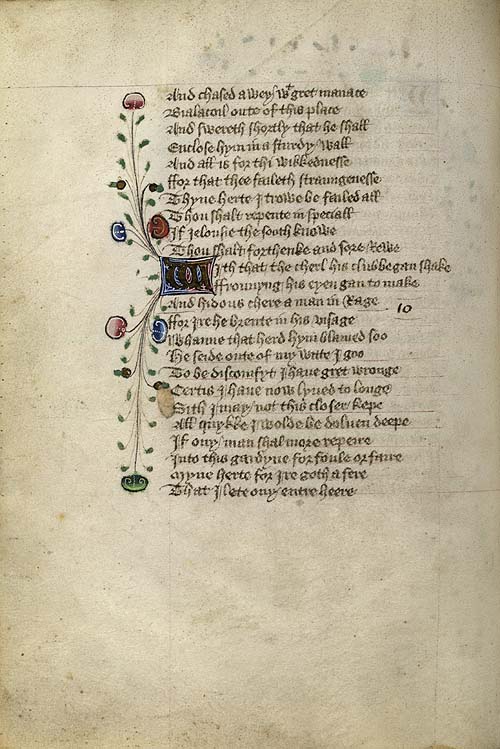 And chased awey wt gret manace
Bialacoil oute of this place
And swereth shortly that he shall
Enclose hym in a sturdy wall
And all is for thi wikkednesse
ffor that thee faileth straungenesse
Thyne herte I trowe be failed all
Thou shalt repente in speciall
If Jelousie the sooth knewe
Thou shalt forthenke and sore Rewe
With that the cherl his clubbe gan shake
ffrounyng his eyen gan to make
And hidous chere a man in Rage
10
ffor Ire he brente in his visage
Whanne that herd hym blamed soo
He seide oute of my witte I goo
To be discomfyt I haue gret wronge
Certis I haue now lyued to longe
Sith I may not this closer kepe
All quykke I wolde be doluen deepe
If ony man shal more repeire
Into this gardyne for foule or faire
Myne herte for Ire goth a fere
That I lete ony entre heere